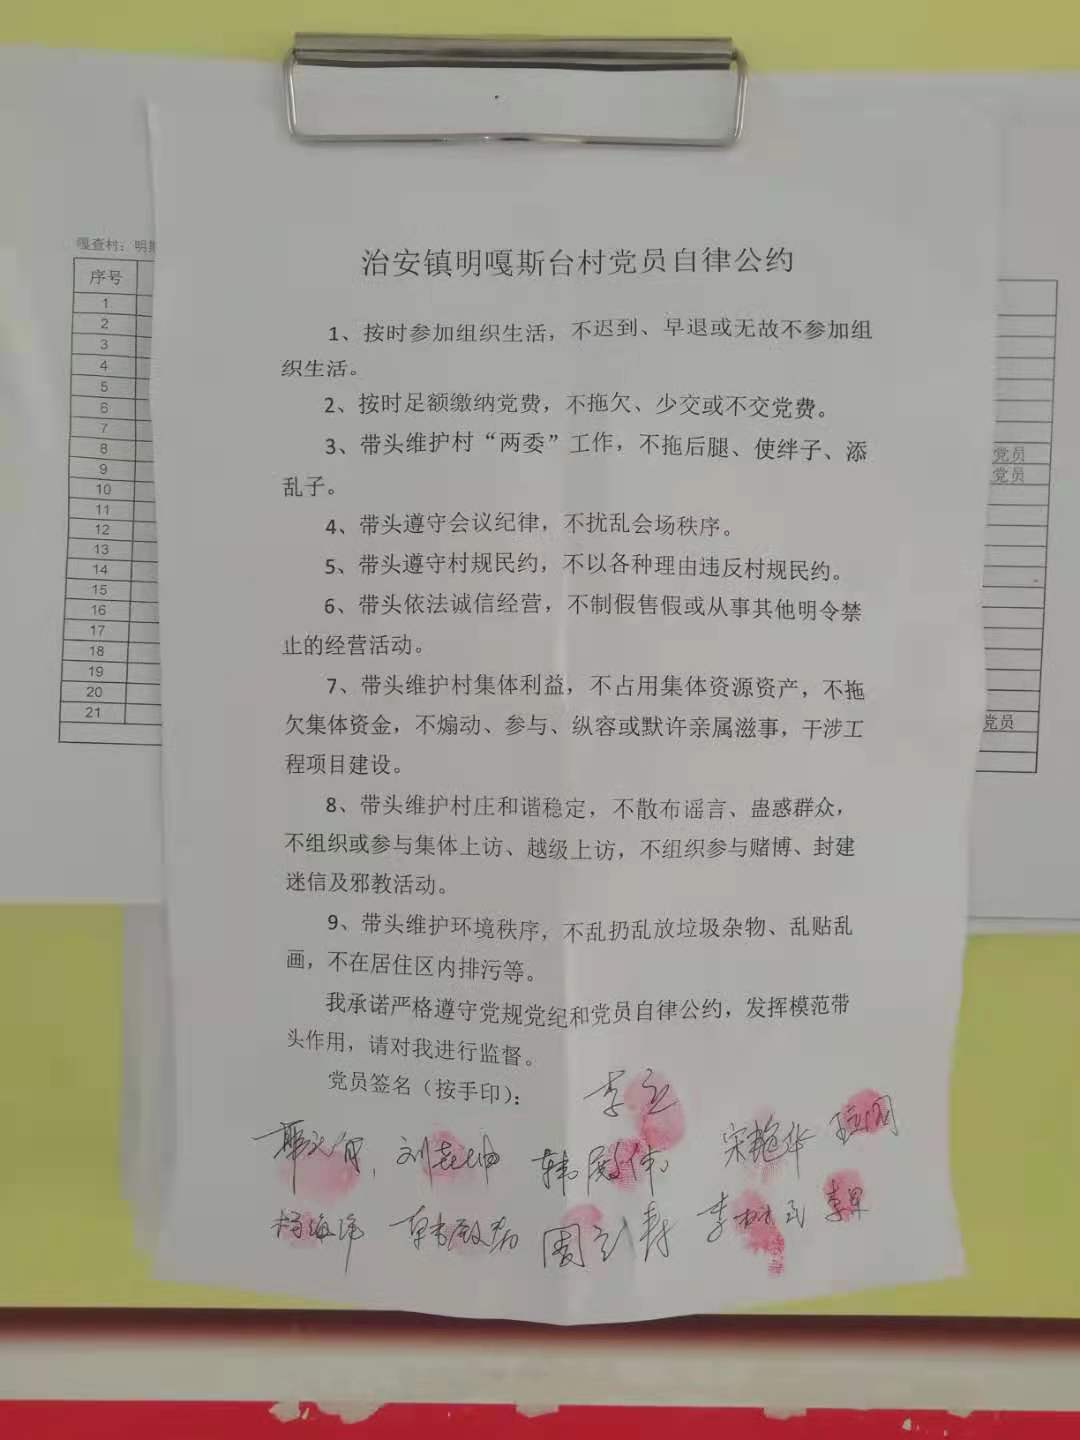 治安镇明嘎斯台村党员自律公约
1、按时参加组织生活，不迟到、早退或无故不参加组
织生活。
2、按时足额缴纳党费，不拖欠、少交或不交党费。
3、带头维护村“两委”工作，不拖后腿、使绊子、添
乱子。
4、带头遵守会议纪律，不扰乱会场秩序。
5、带头遵守村规民约，不以各种理由违反村规民约。
6、带头依法诚信经营，不制假售假或从事其他明令禁
止的经营活动。
7、带头维护村集体利益，不占用集体资源资产，不拖
欠集体资金，不煽动、参与、纵容或默许亲属滋事，干涉工
程项目建设。
8、带头维护村庄和谐稳定，不散布谣言、蛊惑群众，
不组织或参与集体上访、越级上访，不组织参与赌博、封建
迷信及邪教活动。
9、带头维护环境秩序，不乱扔乱放垃圾杂物、乱贴乱
画，不在居住区内排污等。
我承诺严格遵守党规党纪和党员自律公约，发挥模范带
头作用，请对我进行监督。
党员签名（按手印）：
宋艳华
周立寿
嘎查村：明
序号
1
2
3
4
5
6
7
8
9
10
11
12
13
14
15
16
17
18
19
20
21
党员
党员
党员